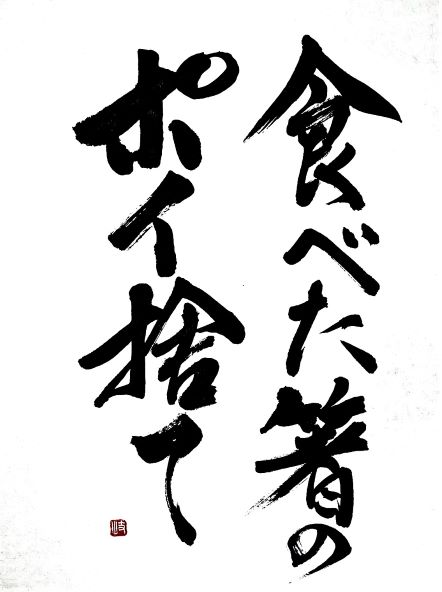 食べた箸の
ポイ捨て